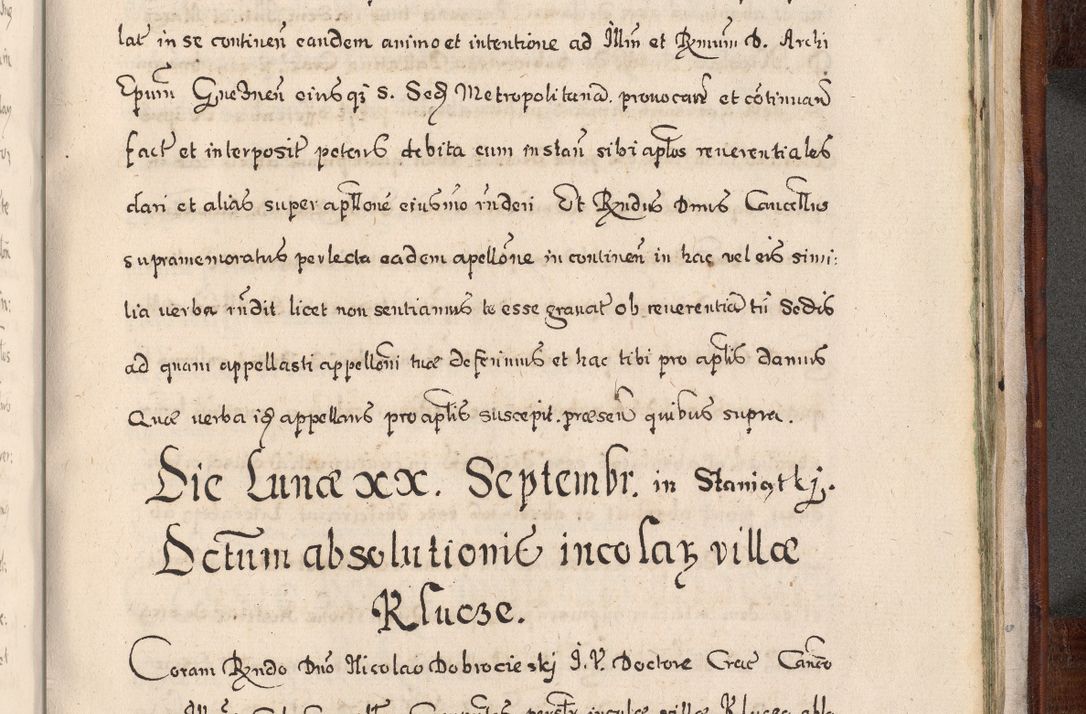 lat in se continen̄ eandem animo et intentione ad Illm̄ et Rmūm D. Archi
Epum̄ Gnesnen̄ eiusq; S. Sed Metropolitana. provocan̄ et cōtinuan̄
fact et interposit petens debita cum instan̄ sibi aplōs reverentiales
dari et alias super apllōne eiusm̄o rn̄deri Et Rndus Dnus Cancellus
supramemoratus perlecta eadem apellōne in continen̄ in hac vel eis simi:
lia verba rn̄dit licet non sentiamus te esse gravat ob reverentiā tn̄ Sedis
ad quam appellasti appellōni tuæ deferimus et hac tibi pro aplīs damus
Quæ verba id appellans pro aplīs suscepit. præsen̄ quibus supra.
Die Lunæ XX. Septembr. in Staniątkj.
Dctum absolutionis incolaꝝ villæ
Klucze.
Coram Rndo Dnō Nicolao Dobrocieskj I. V. Doctore Crac Canco